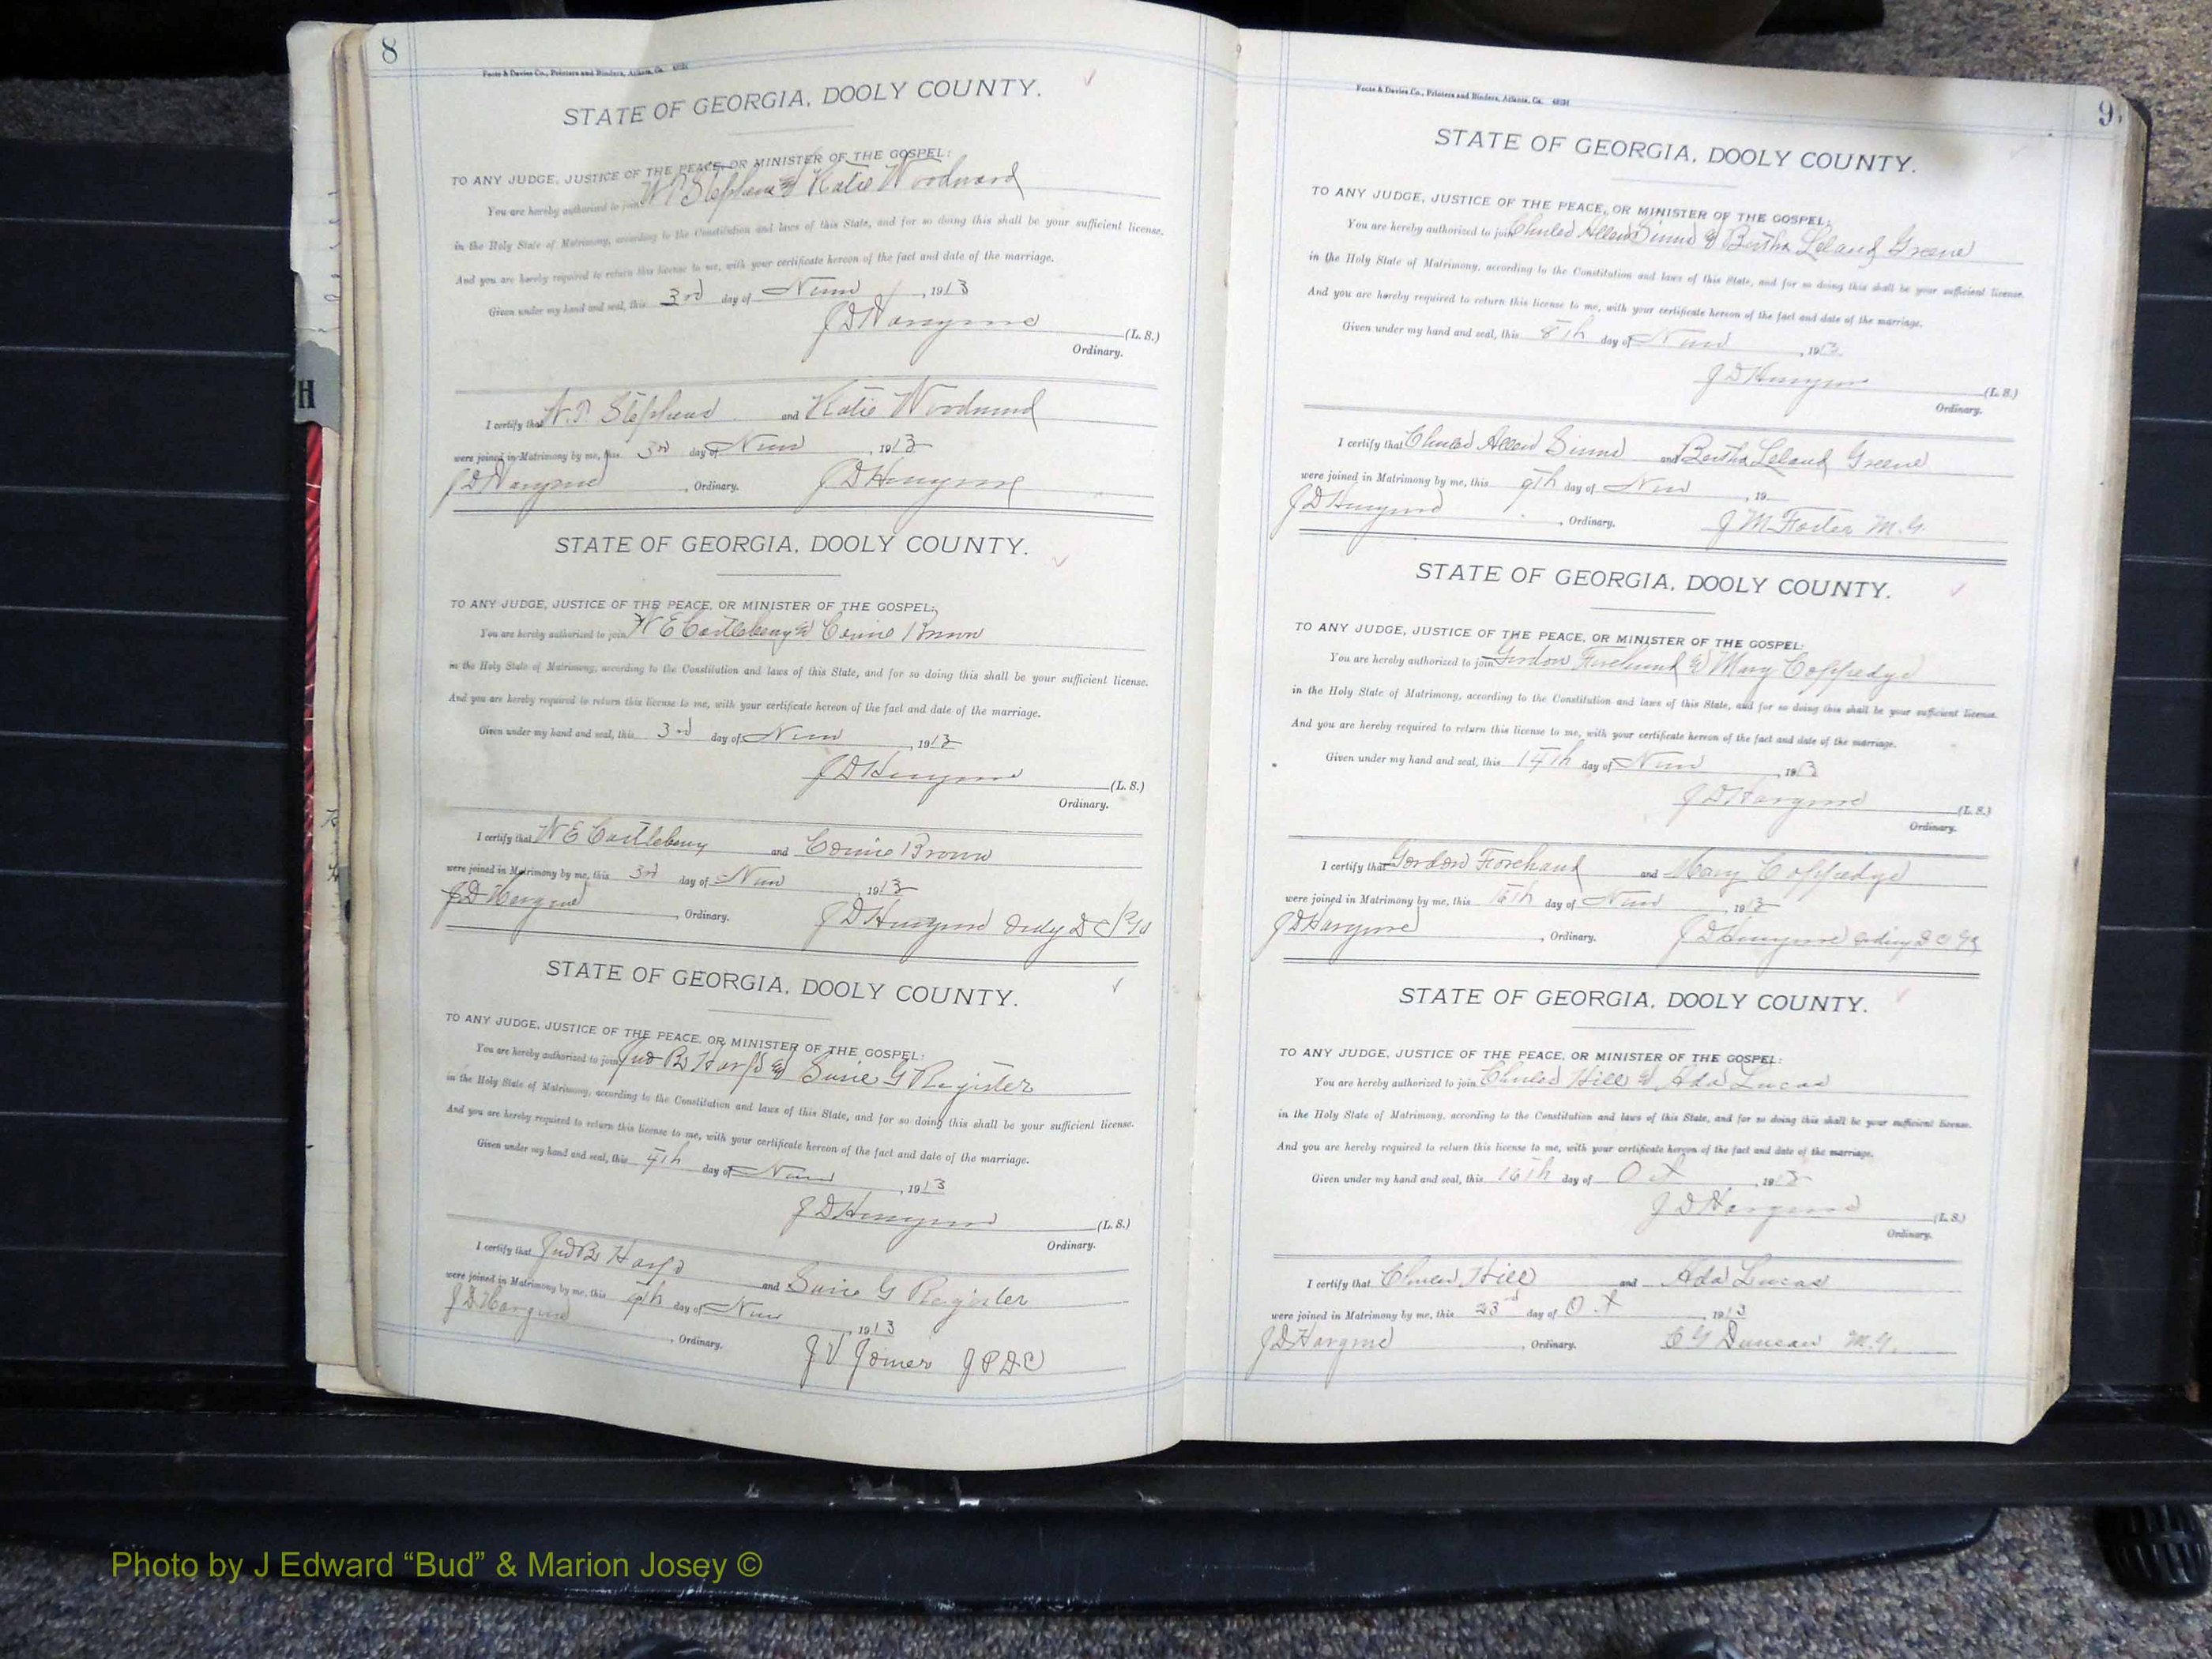 8
Foote & Davies Co., Printers and Binders, Atlanta, Ga.
STATE OF GEORGIA, DOOLY COUNTY.
TO ANY JUDGE, JUSTICE OF THE PEACE, OR MINISTER OF THE GOSPEL:
You are hereby authorized to join Stephens & Katie Woodward
in the Holy State of Matrimony, according to the Constitution and laws of this State, and for so doing this shall be your sufficient license.
And you are hereby required to return this license to me, with your certificate hereon of the fact and date of the marriage.
Given under my hand and seal, this 3rd day of , 1913
J D Hargrove (L. S.)
Ordinary.
I certify that Stephens and Katie Woodward
were joined in Matrimony by me, this 3rd day of , 1913
J D Hargrove , Ordinary. J D Hargrove
STATE OF GEORGIA, DOOLY COUNTY.
TO ANY JUDGE, JUSTICE OF THE PEACE, OR MINISTER OF THE GOSPEL:
You are hereby authorized to join W E Castleberry & Brown
in the Holy State of Matrimony, according to the Constitution and laws of this State, and for so doing this shall be your sufficient license.
And you are hereby required to return this license to me, with your certificate hereon of the fact and date of the marriage.
Given under my hand and seal, this 3rd day of , 1913
J D Hargrove (L. S.)
Ordinary.
I certify that W E Castleberry and Brown
were joined in Matrimony by me, this 3rd day of , 1913
J D Hargrove , Ordinary. J D Hargrove
STATE OF GEORGIA, DOOLY COUNTY.
TO ANY JUDGE, JUSTICE OF THE PEACE, OR MINISTER OF THE GOSPEL:
You are hereby authorized to join & Susie G Register
in the Holy State of Matrimony, according to the Constitution and laws of this State, and for so doing this shall be your sufficient license.
And you are hereby required to return this license to me, with your certificate hereon of the fact and date of the marriage.
Given under my hand and seal, this 4th day of , 1913
J D Hargrove (L. S.)
Ordinary.
I certify that and Susie G Register
were joined in Matrimony by me, this day of , 1913
J D Hargrove , Ordinary.
J V Joiner J P D C
9
Foote & Davies Co., Printers and Binders, Atlanta, Ga.
STATE OF GEORGIA, DOOLY COUNTY.
TO ANY JUDGE, JUSTICE OF THE PEACE, OR MINISTER OF THE GOSPEL:
You are hereby authorized to join Allen & Bertha Leland Greene
in the Holy State of Matrimony, according to the Constitution and laws of this State, and for so doing this shall be your sufficient license.
And you are hereby required to return this license to me, with your certificate hereon of the fact and date of the marriage.
Given under my hand and seal, this 8th day of , 1913
J D Hargrove (L. S.)
Ordinary.
I certify that Allen and Bertha Leland Greene
were joined in Matrimony by me, this 9th day of , 19
J D Hargrove , Ordinary. J M Foster M. G.
STATE OF GEORGIA, DOOLY COUNTY.
TO ANY JUDGE, JUSTICE OF THE PEACE, OR MINISTER OF THE GOSPEL:
You are hereby authorized to join Gordon Forehand & Mary Coppedge
in the Holy State of Matrimony, according to the Constitution and laws of this State, and for so doing this shall be your sufficient license.
And you are hereby required to return this license to me, with your certificate hereon of the fact and date of the marriage.
Given under my hand and seal, this day of , 1913
J D Hargrove (L. S.)
Ordinary.
I certify that Gordon Forehand and Mary Coppedge
were joined in Matrimony by me, this day of , 1913
J D Hargrove , Ordinary. J D Hargrove
STATE OF GEORGIA, DOOLY COUNTY.
TO ANY JUDGE, JUSTICE OF THE PEACE, OR MINISTER OF THE GOSPEL:
You are hereby authorized to join Hill & Ada Lucas
in the Holy State of Matrimony, according to the Constitution and laws of this State, and for so doing this shall be your sufficient license.
And you are hereby required to return this license to me, with your certificate hereon of the fact and date of the marriage.
Given under my hand and seal, this 16th day of Oct , 1913
J D Hargrove (L. S.)
Ordinary.
I certify that Hill and Ada Lucas
were joined in Matrimony by me, this 23rd day of Oct , 1913
J D Hargrove , Ordinary. Duncan M. G.
H
Photo by J Edward “Bud” & Marion Josey ©